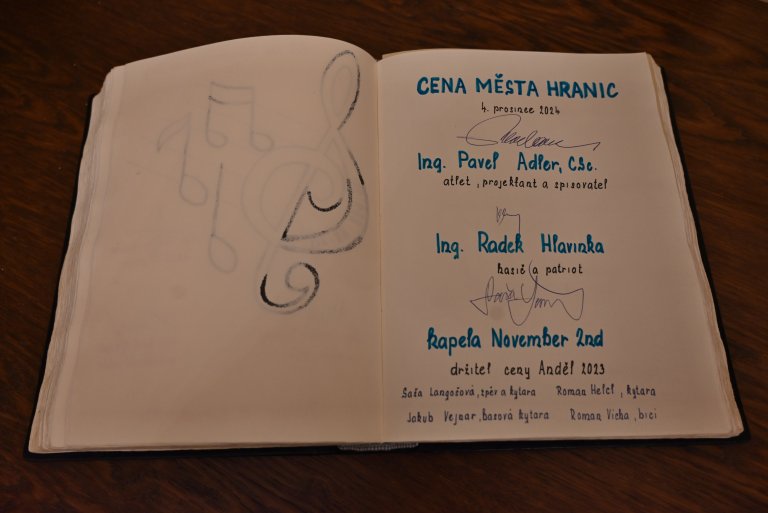 CENA MĚSTA HRANIC
4. prosinec 2024
Ing. Pavel Adler, CSc.
atlet, projektant a spisovatel
Ing. Radek Hlavinka
hasič a patriot
kapela November 2nd
držitel ceny Anděl 2023
Saša Langošová, zpěv a kytara Roman Helcl, kytara
Jakub Vejnar, basová kytara Roman Vicha, bicí